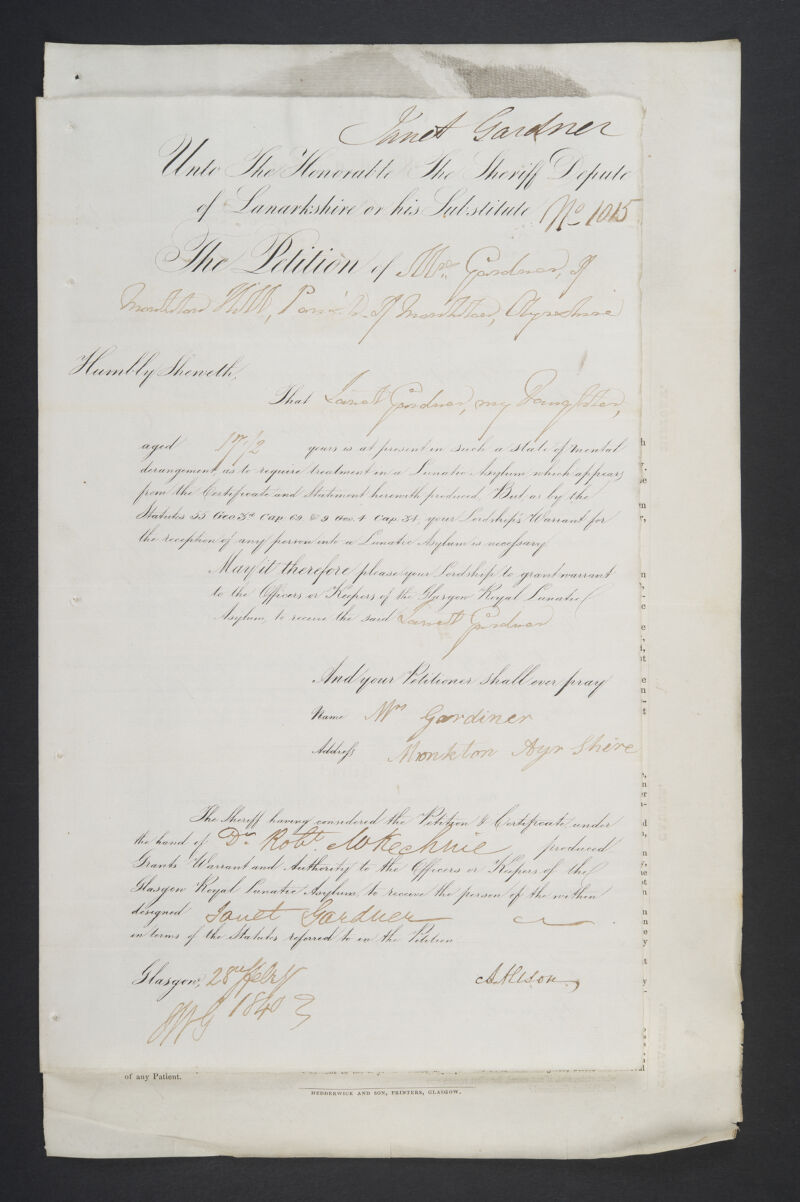 Janet Gardner
Unto The Honorable The Sheriff Depute
of Lanarkshire or his Substitute No 1015
The Petition of Mrs Gardner, of
Monkton Hill, Parish of Monkton, Ayrshire
Humbly Sheweth,
That Janet Gardner, my Daughter,
aged 17 1/2 years is at present in such a state of mental
derangement as to require treatment in a Lunatic Asylum which appears
from the Certificate and Statement herewith produced. But as by the
Statutes 55 Geo 3d Cap 69 & 9 Geo. 4 Cap 34, your Lordship's Warrant for
the reception of any person into a Lunatic Asylum is necessary
May it therefore please your Lordship to grant warrant
to the Officers or Keepers of the Glasgow Royal Lunatic
Asylum, to receive the said Janet Gardner
And your Petitioner shall ever pray
Name Mrs Gardiner
Address Monkton Ayr Shire
The Sheriff having considered the Petition & Certificate under
the hand of Dr Robt McKechnie produced
Grants Warrant and Authority to the Officers or Keepers of the
Glasgow Royal Lunatic Asylum, to receive the person of the within
designed Janet Gardner
in terms of the Statutes referred to in the Petition
Glasgow, 28 Feby
1840 A Alison
of any Patient.
HEDDERWICK AND SON, PRINTERS, GLASGOW.